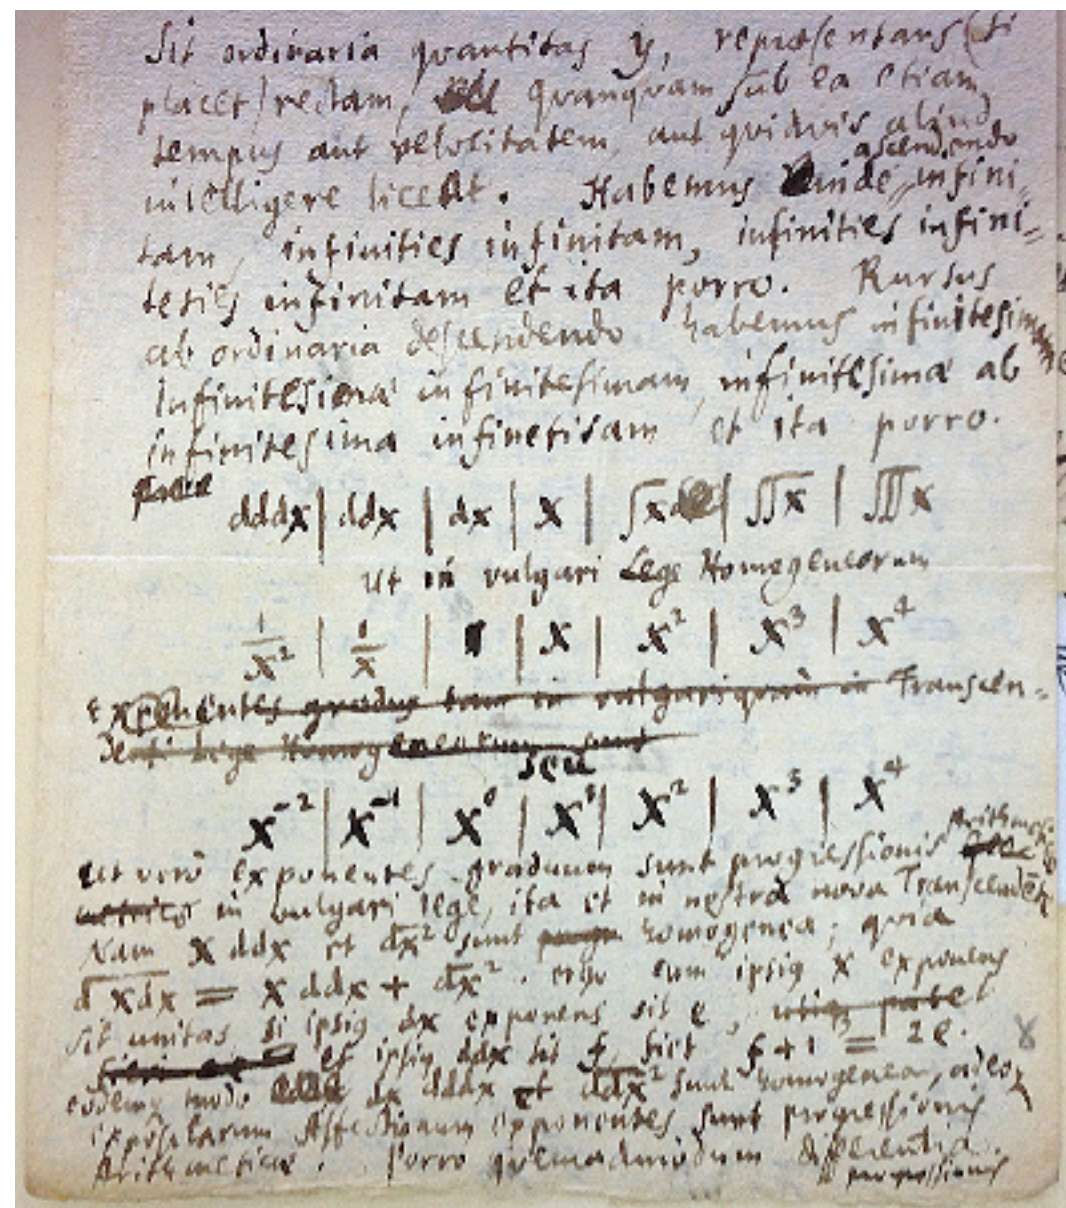 Sit ordinaria quantitas y, repræsentans (si
placet) rectam, quanquam sub ea etiam
tempus aut velocitatem, aut quidvis aliud
ascendendo
intelligere liceat. Habemus inde infini-
tam, infinities infinitam, infinities infini-
ties infinitam et ita porro. Rursus
ab ordinaria descendendo habemus infinitesimam
infinitesimæ infinitesimam, infinitesimæ ab
infinitesima infinetisam et ita porro.
dddx | ddx | dx | x | ∫x | ∫∫x | ∫∫∫x
ut in vulgari Lege Homogeneorum
1/x² | 1/x | 1 | x | x² | x³ | x⁴
Exponentes gradus tam in vulgari quam in Transcen-
denti Lege Homogeneorum sunt
seu
x⁻² | x⁻¹ | x⁰ | x¹ | x² | x³ | x⁴
Arithmeticæ
Ut verò exponentes graduum sunt progressionis
in vulgari lege, ita et in nostra nova Transcendente
Nam x ddx et dx² sunt homogenea; quia
d xdx = x ddx + dx². ergo cum ipsiq x exponens
sit unitas si ipsiq dx exponens sit e, utiq patet
et ipsiq ddx sit f, fiet f + 1 = 2e.
eodemq modo dx dddx et ddx² sunt homogenea, adeoq
expositarum Affectionum exponentes sunt progressionis
Arithmeticæ. Porro quemadmodum differentia
progressionis